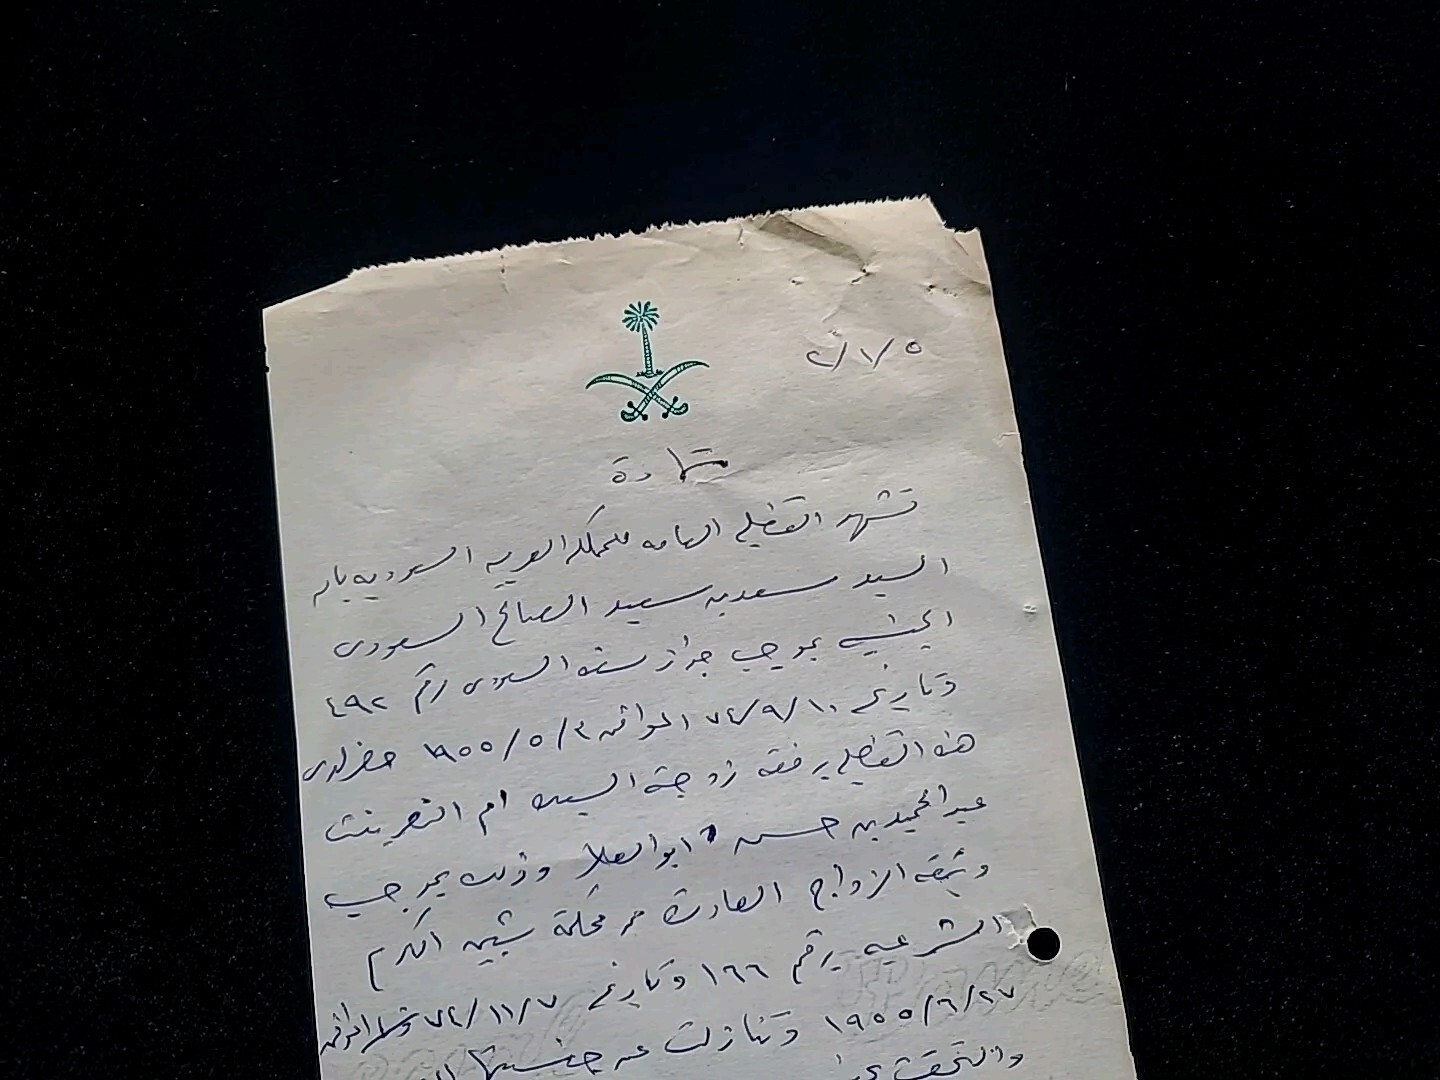 ٥/١/٢
شهادة
تشهد القنصلية العامه للمملكه العربيه السعوديه بان
السيد سعد بن سعيد الصالح السعودى
الجنسيه بموجب جواز سفره السعودى رقم ٤٩٢
وتاريخ ٧٤/٩/١٠ الموافق ١٩٥٥/٥/٢ حضر لدى
هذه القنصليه برفقة زوجته السيده ام النصر بنت
عبد الحميد بن حسن ابو العلا وذلك بموجب
وثيقة الزواج الصادرة من محكمة شبين الكوم
الشرعيه برقم ١٦٦ وتاريخ ٧٤/١١/٧ الموافق
١٩٥٥/٦/٢٧ وتنازلت عن جنسيتها
والتحقت